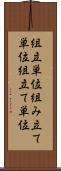 組立単位組み立て
単位組立て単位